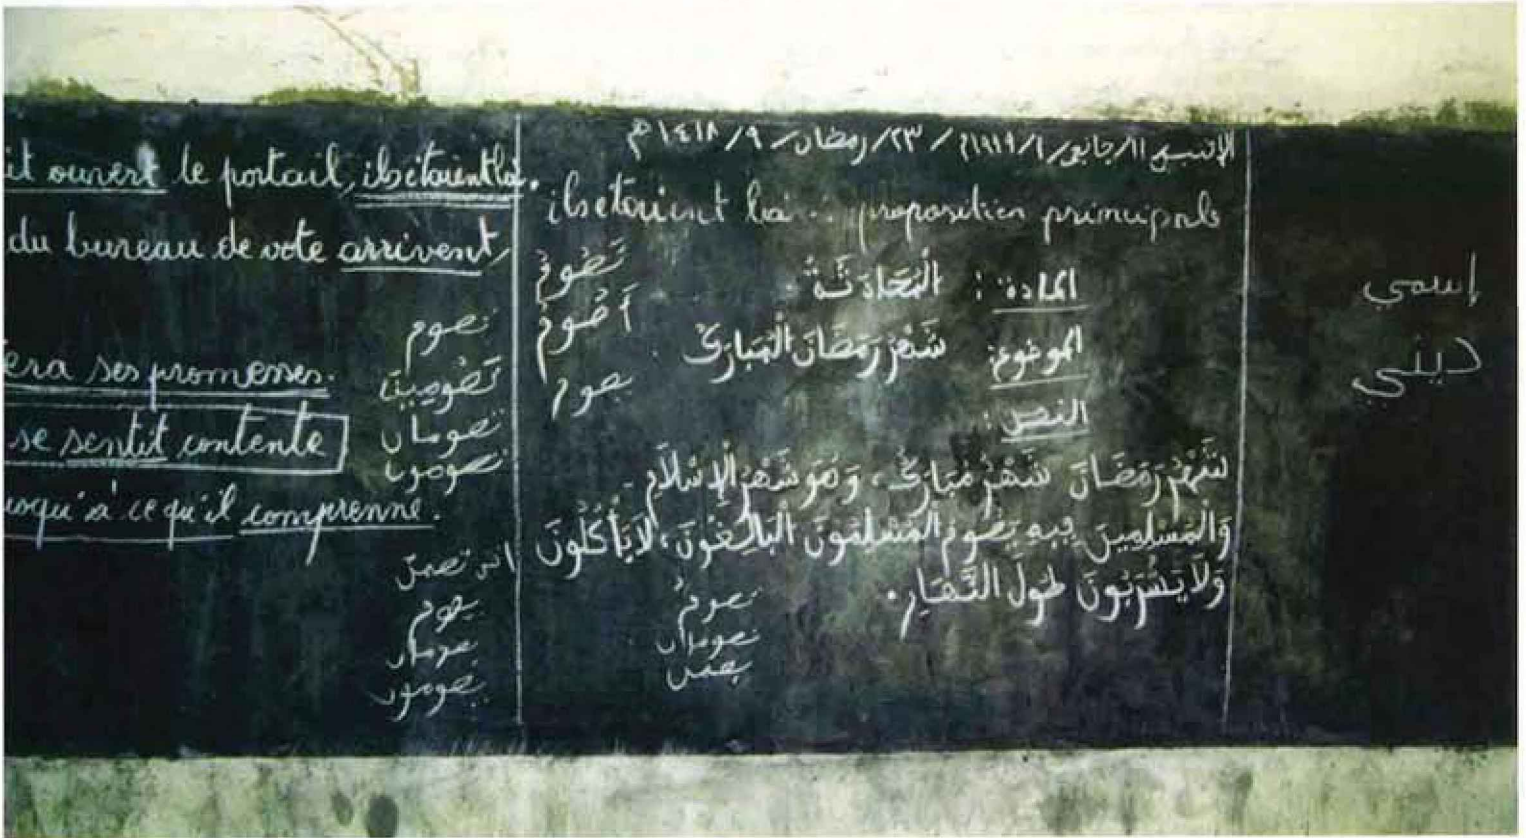 it ouvert le portail, ils étaient là.
du bureau de vote arrivent,
era ses promesses.
se sentit contente
usqu'à ce qu'il comprenne.
تصوم
تصومين
تصومان
تصومون
انتن تصمن
يصوم
يصومان
يصومون
ils étaient là : proposition principale
تَصُومُ
أَصُومُ
يصوم
المادة : الْمُحَادَثَةُ
الموضوع: شَهْرُ رَمَضَانَ الْمُبَارَكُ
النص :
شَهْرُ رَمَضَانَ شَهْرٌ مُبَارَكٌ، وَهُوَ شَهْرُ الْإِسْلَامِ
وَالْمُسْلِمِينَ فِيهِ يَصُومُ الْمُسْلِمُونَ الْبَالِغُونَ، لَا يَأْكُلُونَ
وَلَا يَشْرَبُونَ طُولَ النَّهَارِ.
تصومُ
تصومان
يصمن
إسمي
ديني